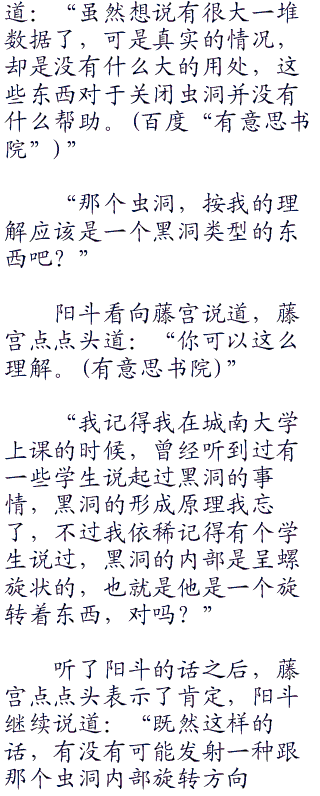 道：“虽然想说有很大一堆
数据了，可是真实的情况，
却是没有什么大的用处，这
些东西对于关闭虫洞并没有
什么帮助。(百度“有意思书
院”)”
“那个虫洞，按我的理
解应该是一个黑洞类型的东
西吧？”
阳斗看向藤宫说道，藤
宫点点头道：“你可以这么
理解。(有意思书院)”
“我记得我在城南大学
上课的时候，曾经听到过有
一些学生说起过黑洞的事
情，黑洞的形成原理我忘
了，不过我依稀记得有个学
生说过，黑洞的内部是呈螺
旋状的，也就是他是一个旋
转着东西，对吗？”
听了阳斗的话之后，藤
宫点点头表示了肯定，阳斗
继续说道：“既然这样的
话，有没有可能发射一种跟
那个虫洞内部旋转方向